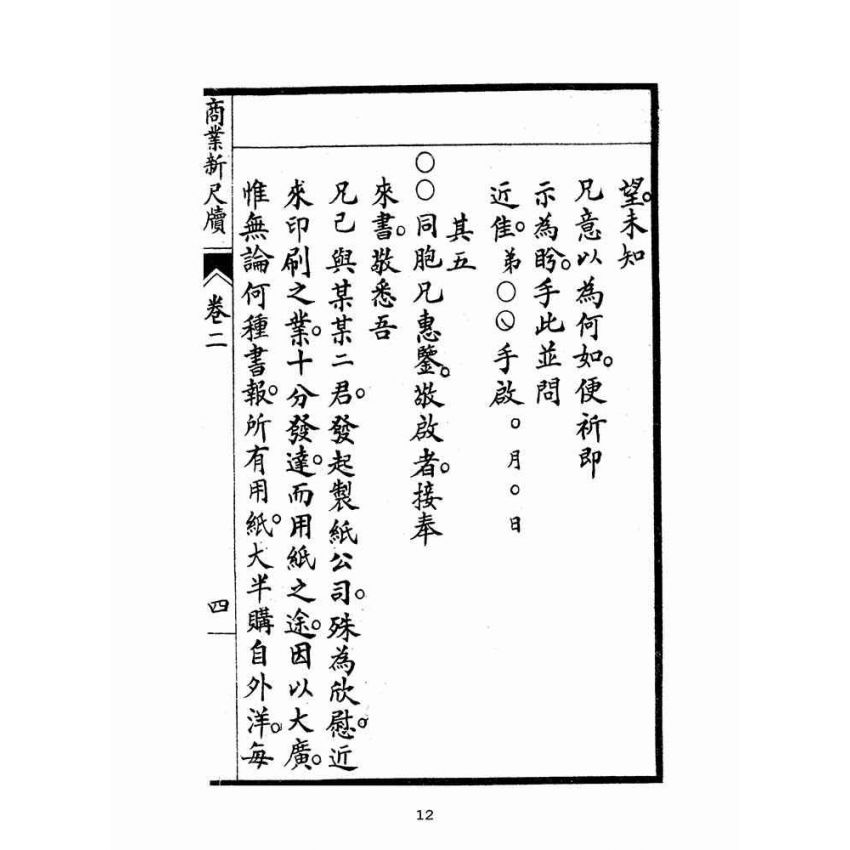 望。未知
兄意以為何如。便祈即
示為盼。手此並問
近佳。弟○○手啟。月。日
其五
○○同胞兄惠鑒。敬啟者。接奉
來書。敬悉吾
兄已與某某二君。發起製紙公司。殊為欣慰。近
來印刷之業。十分發達。而用紙之途。因以大廣。
惟無論何種書報。所有用紙。大半購自外洋。每
商業新尺牘 卷二 四
12